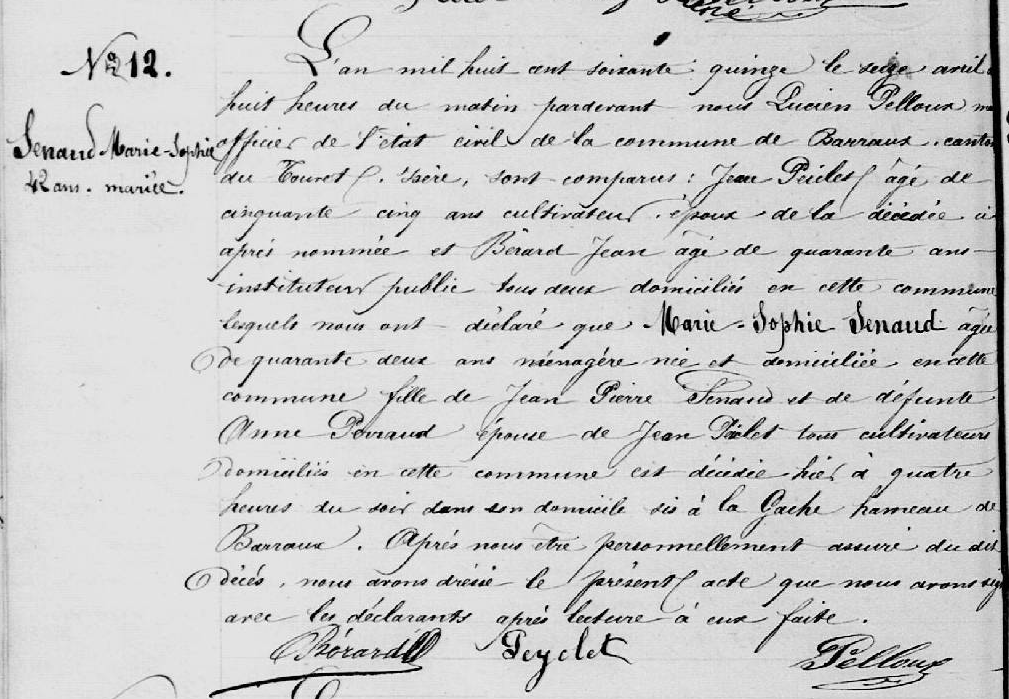 Nº 12.
Senaud Marie-Sophie
42 ans. mariée.
L'an mil huit cent soixante quinze le seize avril à
huit heures du matin pardevant nous Lucien Pelloux
officier de l'état civil de la commune de Barraux, canton
du Touvet, Isère, sont comparus : Jean Péclet âgé de
cinquante cinq ans cultivateur, époux de la décédée ci
après nommée et Bérard Jean âgé de quarante ans
instituteur public tous deux domiciliés en cette commune
lesquels nous ont déclaré que Marie-Sophie Senaud âgée
de quarante deux ans ménagère née et domiciliée en cette
commune fille de Jean Pierre Senaud et de défunte
Anne Perraud épouse de Jean Péclet tous cultivateurs
domiciliés en cette commune est décédée hier à quatre
heures du soir dans son domicile sis à la Gache hameau de
Barraux. Après nous être personnellement assuré du dit
décès, nous avons dressé le présent acte que nous avons
avec les déclarants après lecture à eux faite.
Bérard Peyclet Pelloux